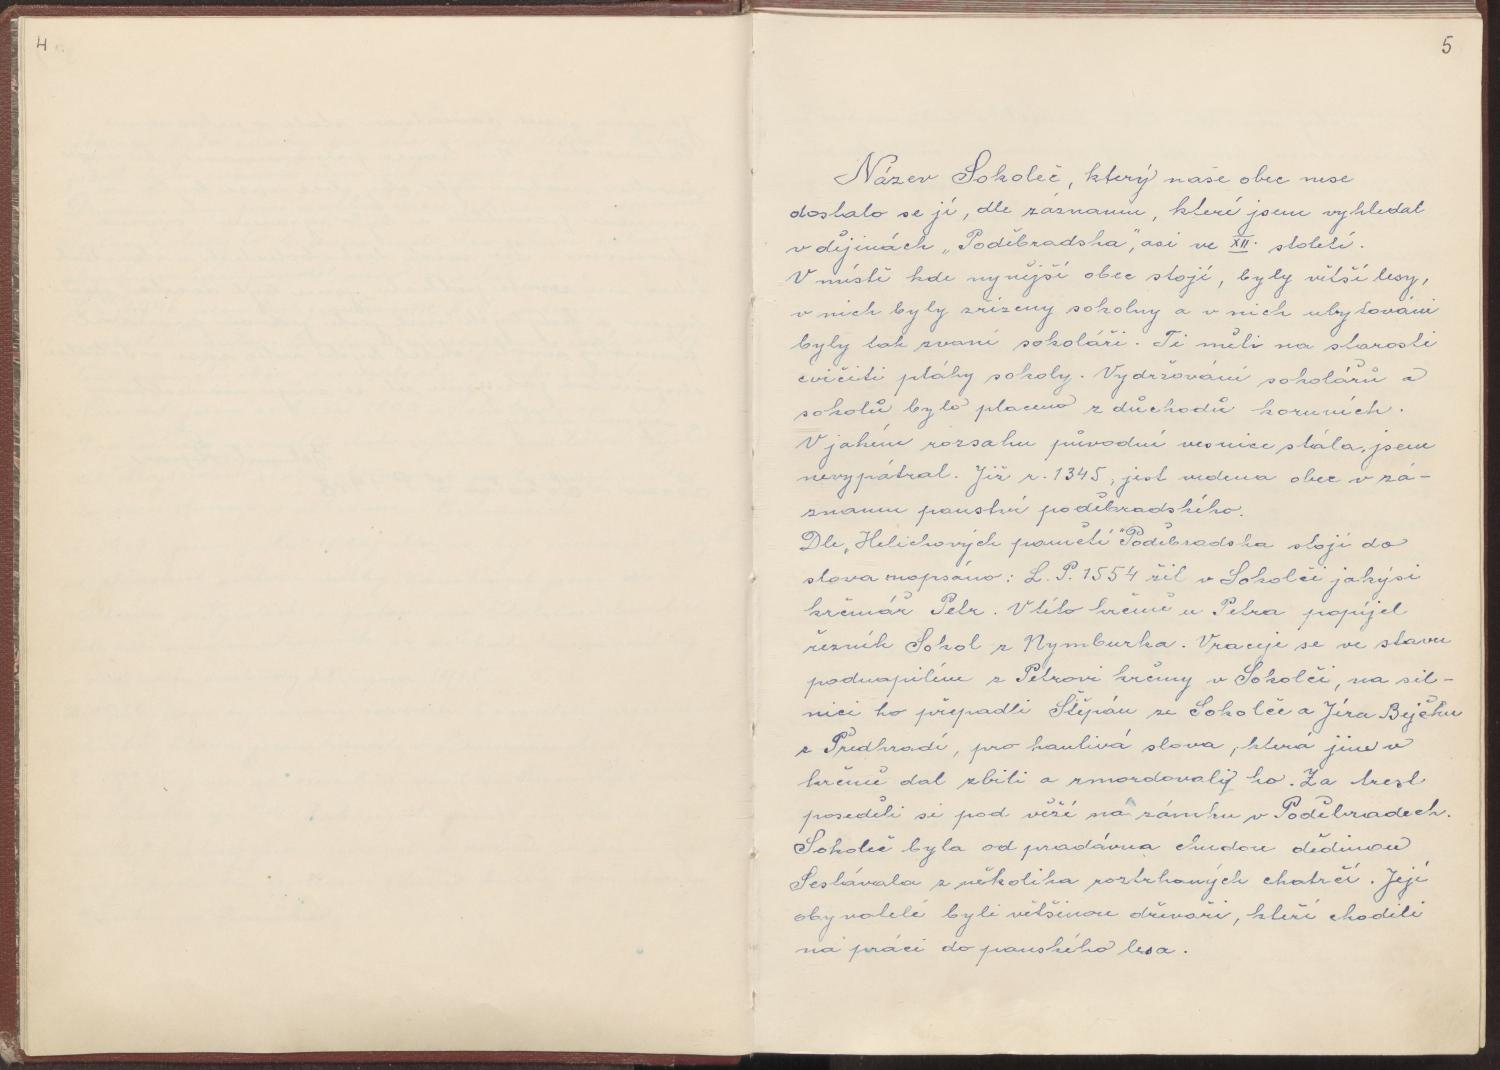 4
5
Název Sokoleč, který naše obec nese
dostalo se jí, dle záznamu, které jsem vyhledal
v dějinách „Poděbradska", asi ve XII. století.
V místě kde nynější obec stojí, byly větší lesy,
v nich byly zřízeny sokolny a v nich ubytováni
byly tak zvaní sokoláři. Ti měli na starosti
cvičiti ptáky sokoly. Vydržování sokolářů a
sokolů bylo placeno z důchodů koruních.
V jakém rozsahu původní vesnice stála, jsem
nevypátral. Již r. 1345, jest vedena obec v zá-
znamu panství poděbradského.
Dle „Helichových pamětí" Poděbradska stojí do
slova napsáno: L. P. 1554 žil v Sokolči jakýsi
krčmář Petr. V této krčmě u Petra popíjel
řezník Sokol z Nymburka. Vraceje se ve stavu
podnapilém z Petrovi krčmy v Sokolči, na sil-
nici ho přepadli Štěpán ze Sokolče a Jíra Bejčku
z Předhradí, pro hanlivá slova, která jim v
krčmě dal zbili a zmordovali ho. Za trest
poseděli si pod věží na zámku v Poděbradech.
Sokoleč byla od pradávna chudou dědinou
Sestávala z několika roztrhaných chatrčí. Její
obyvatelé byli většinou dřevaři, kteří chodili
na práci do panského lesa.